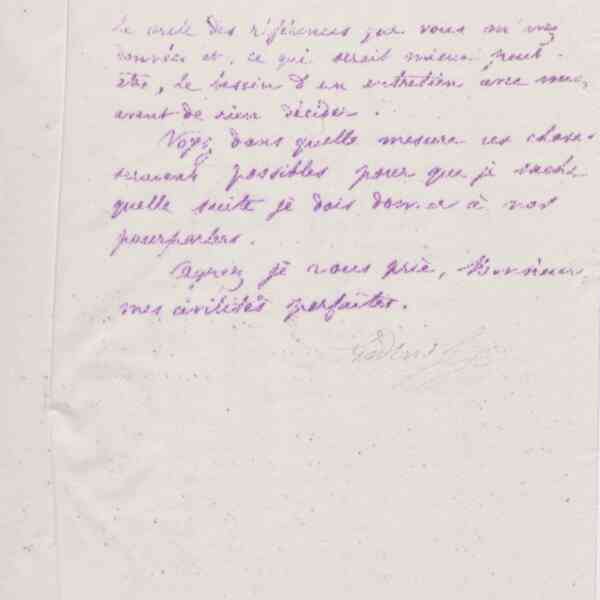 le cercle des références que vous m'avez
données et, ce qui serait mieux peut-
être, le besoin d'un entretien avec vous,
avant de rien décider.
Voyez dans quelle mesure ces choses
seraient possibles pour que je sache
quelle suite je dois donner à nos
pourparlers.
Agréez, je vous prie, Monsieur
mes civilités parfaites.